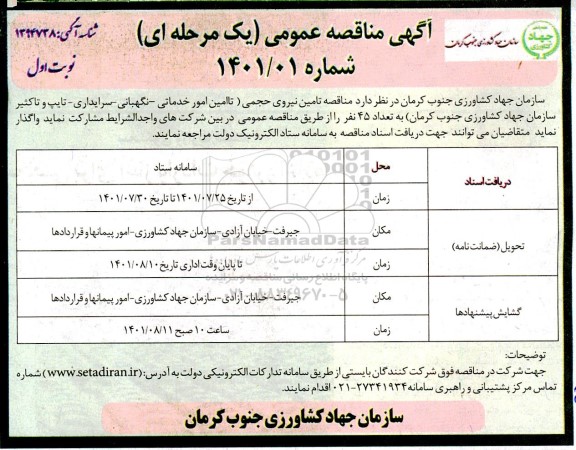 آگهی مناقصه عمومی (یک مرحله ای)
شماره ۱۴۰۱/۰۱
شناسه آگهی: ۱۳۹۴۷۳۸
نوبت اول
سازمان جهاد کشاورزی جنوب کرمان
جهاد کشاورزی
سازمان جهاد کشاورزی جنوب کرمان در نظر دارد مناقصه تامین نیروی حجمی ( تاامین امور خدماتی -نگهبانی-سرایداری- تایپ و تاکثیر
سازمان جهاد کشاورزی جنوب کرمان) به تعداد ۴۵ نفر را از طریق مناقصه عمومی در بین شرکت های واجدالشرایط مشارکت نماید واگذار
نماید متقاضیان می توانند جهت دریافت اسناد مناقصه به سامانه ستاد الکترونیک دولت مراجعه نمایند.
دریافت اسناد
محل
سامانه ستاد
زمان
از تاریخ ۱۴۰۱/۰۷/۲۵ تا تاریخ ۱۴۰۱/۰۷/۳۰
تحویل (ضمانت نامه)
مکان
جیرفت-خیابان آزادی-سازمان جهاد کشاورزی-امور پیمانها و قراردادها
زمان
تا پایان وقت اداری تاریخ ۱۴۰۱/۰۸/۱۰
گشایش پیشنهادها
مکان
جیرفت-خیابان آزادی-سازمان جهاد کشاورزی-امور پیمانها و قراردادها
زمان
ساعت ۱۰ صبح ۱۴۰۱/۰۸/۱۱
ParsNamadData
۰۲۱-۸۸۳۴۹۶۷۰-۵
توضیحات:
جهت شرکت در مناقصه فوق شرکت کنندگان بایستی از طریق سامانه تدارکات الکترونیکی دولت به آدرس: (www.setadiran.ir) شماره
تماس مرکز پشتیبانی و راهبری سامانه ۲۷۳۴۱۹۳۴-۰۲۱ اقدام نمایند.
سازمان جهاد کشاورزی جنوب کرمان